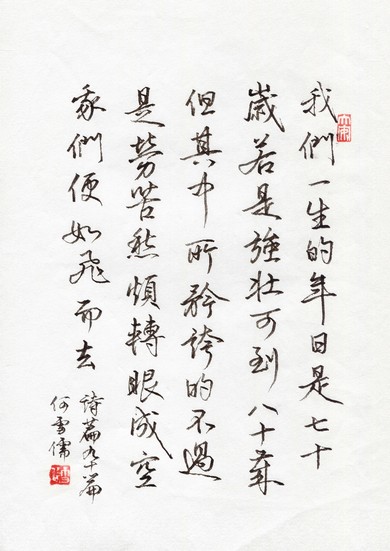 我們一生的年日是七十
歲若是強壯可到八十歲
但其中所矜誇的不過
是勞苦愁煩轉眼成空
我們便如飛而去
詩篇九十篇
何雲儒